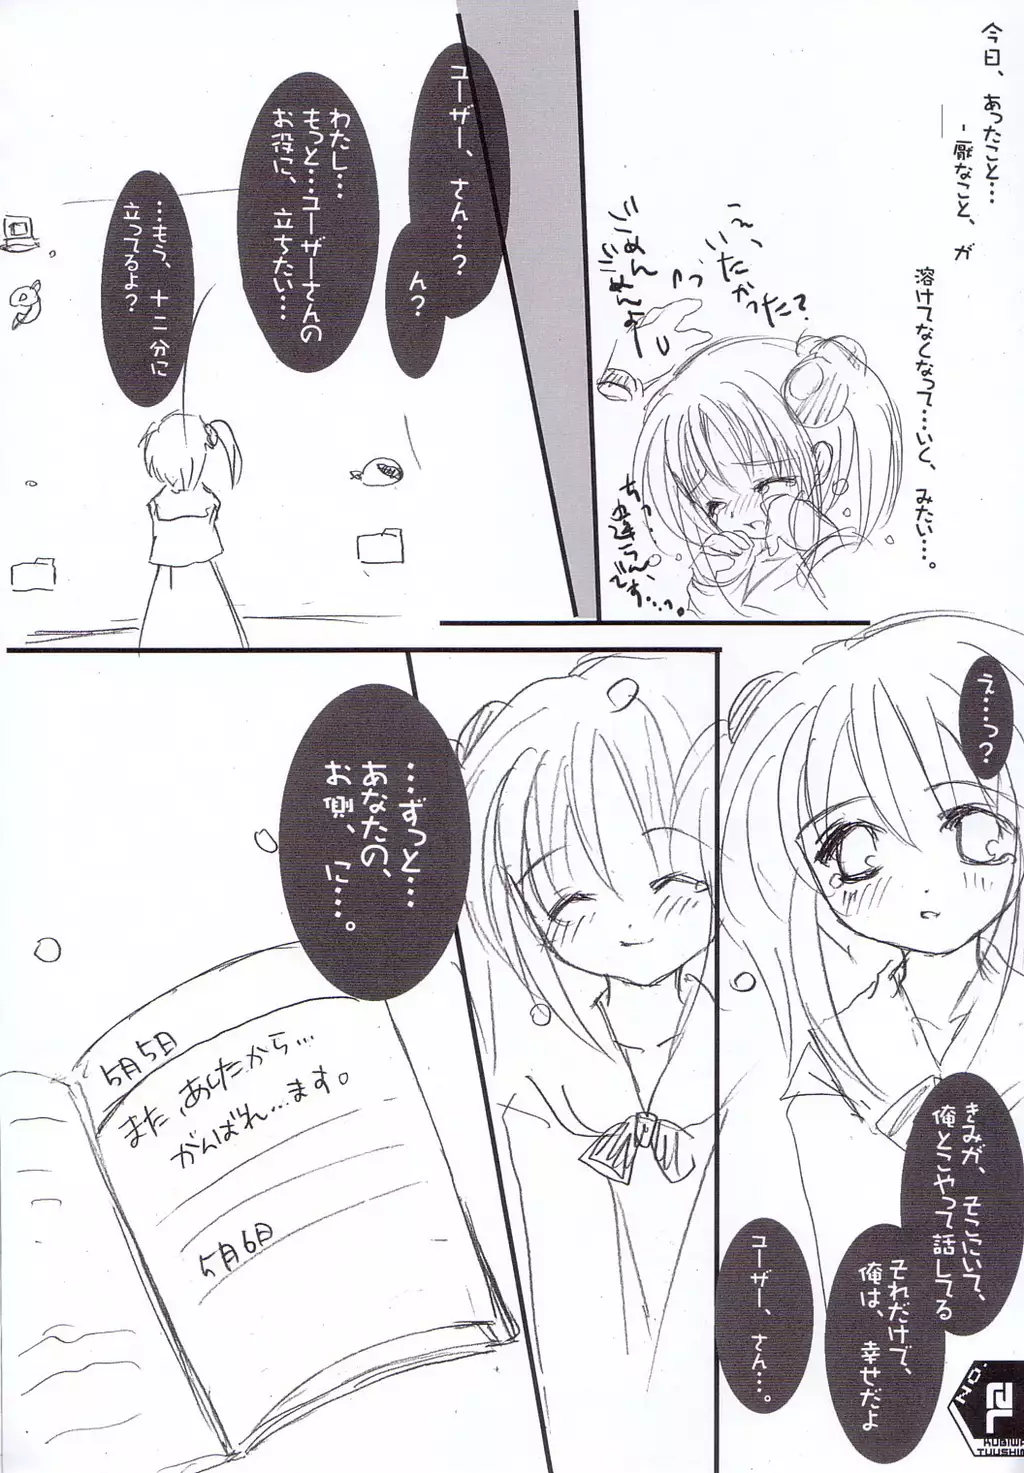 今日、あったこと…
-厭なこと、が
溶けてなくなって…いく、みたい…。
いえ、
いたかった？
ごめん
ちっ…
違うんです…っ。
ユーザー、さん…？
ん？
わたし…
もっと…ユーザーさんの
お役に、立ちたい…
…もう、十二分に
立ってるよ？
え…っ？
きみが、そこにいて、
俺とこやって話してる
それだけで、
俺は、幸せだよ
ユーザー、さん…。
…ずっと…
あなたの、
お側、に…。
5月5日
また、あしたから…
がんばれ…ます。
5月6日
KUBIWA
TUUSHIN